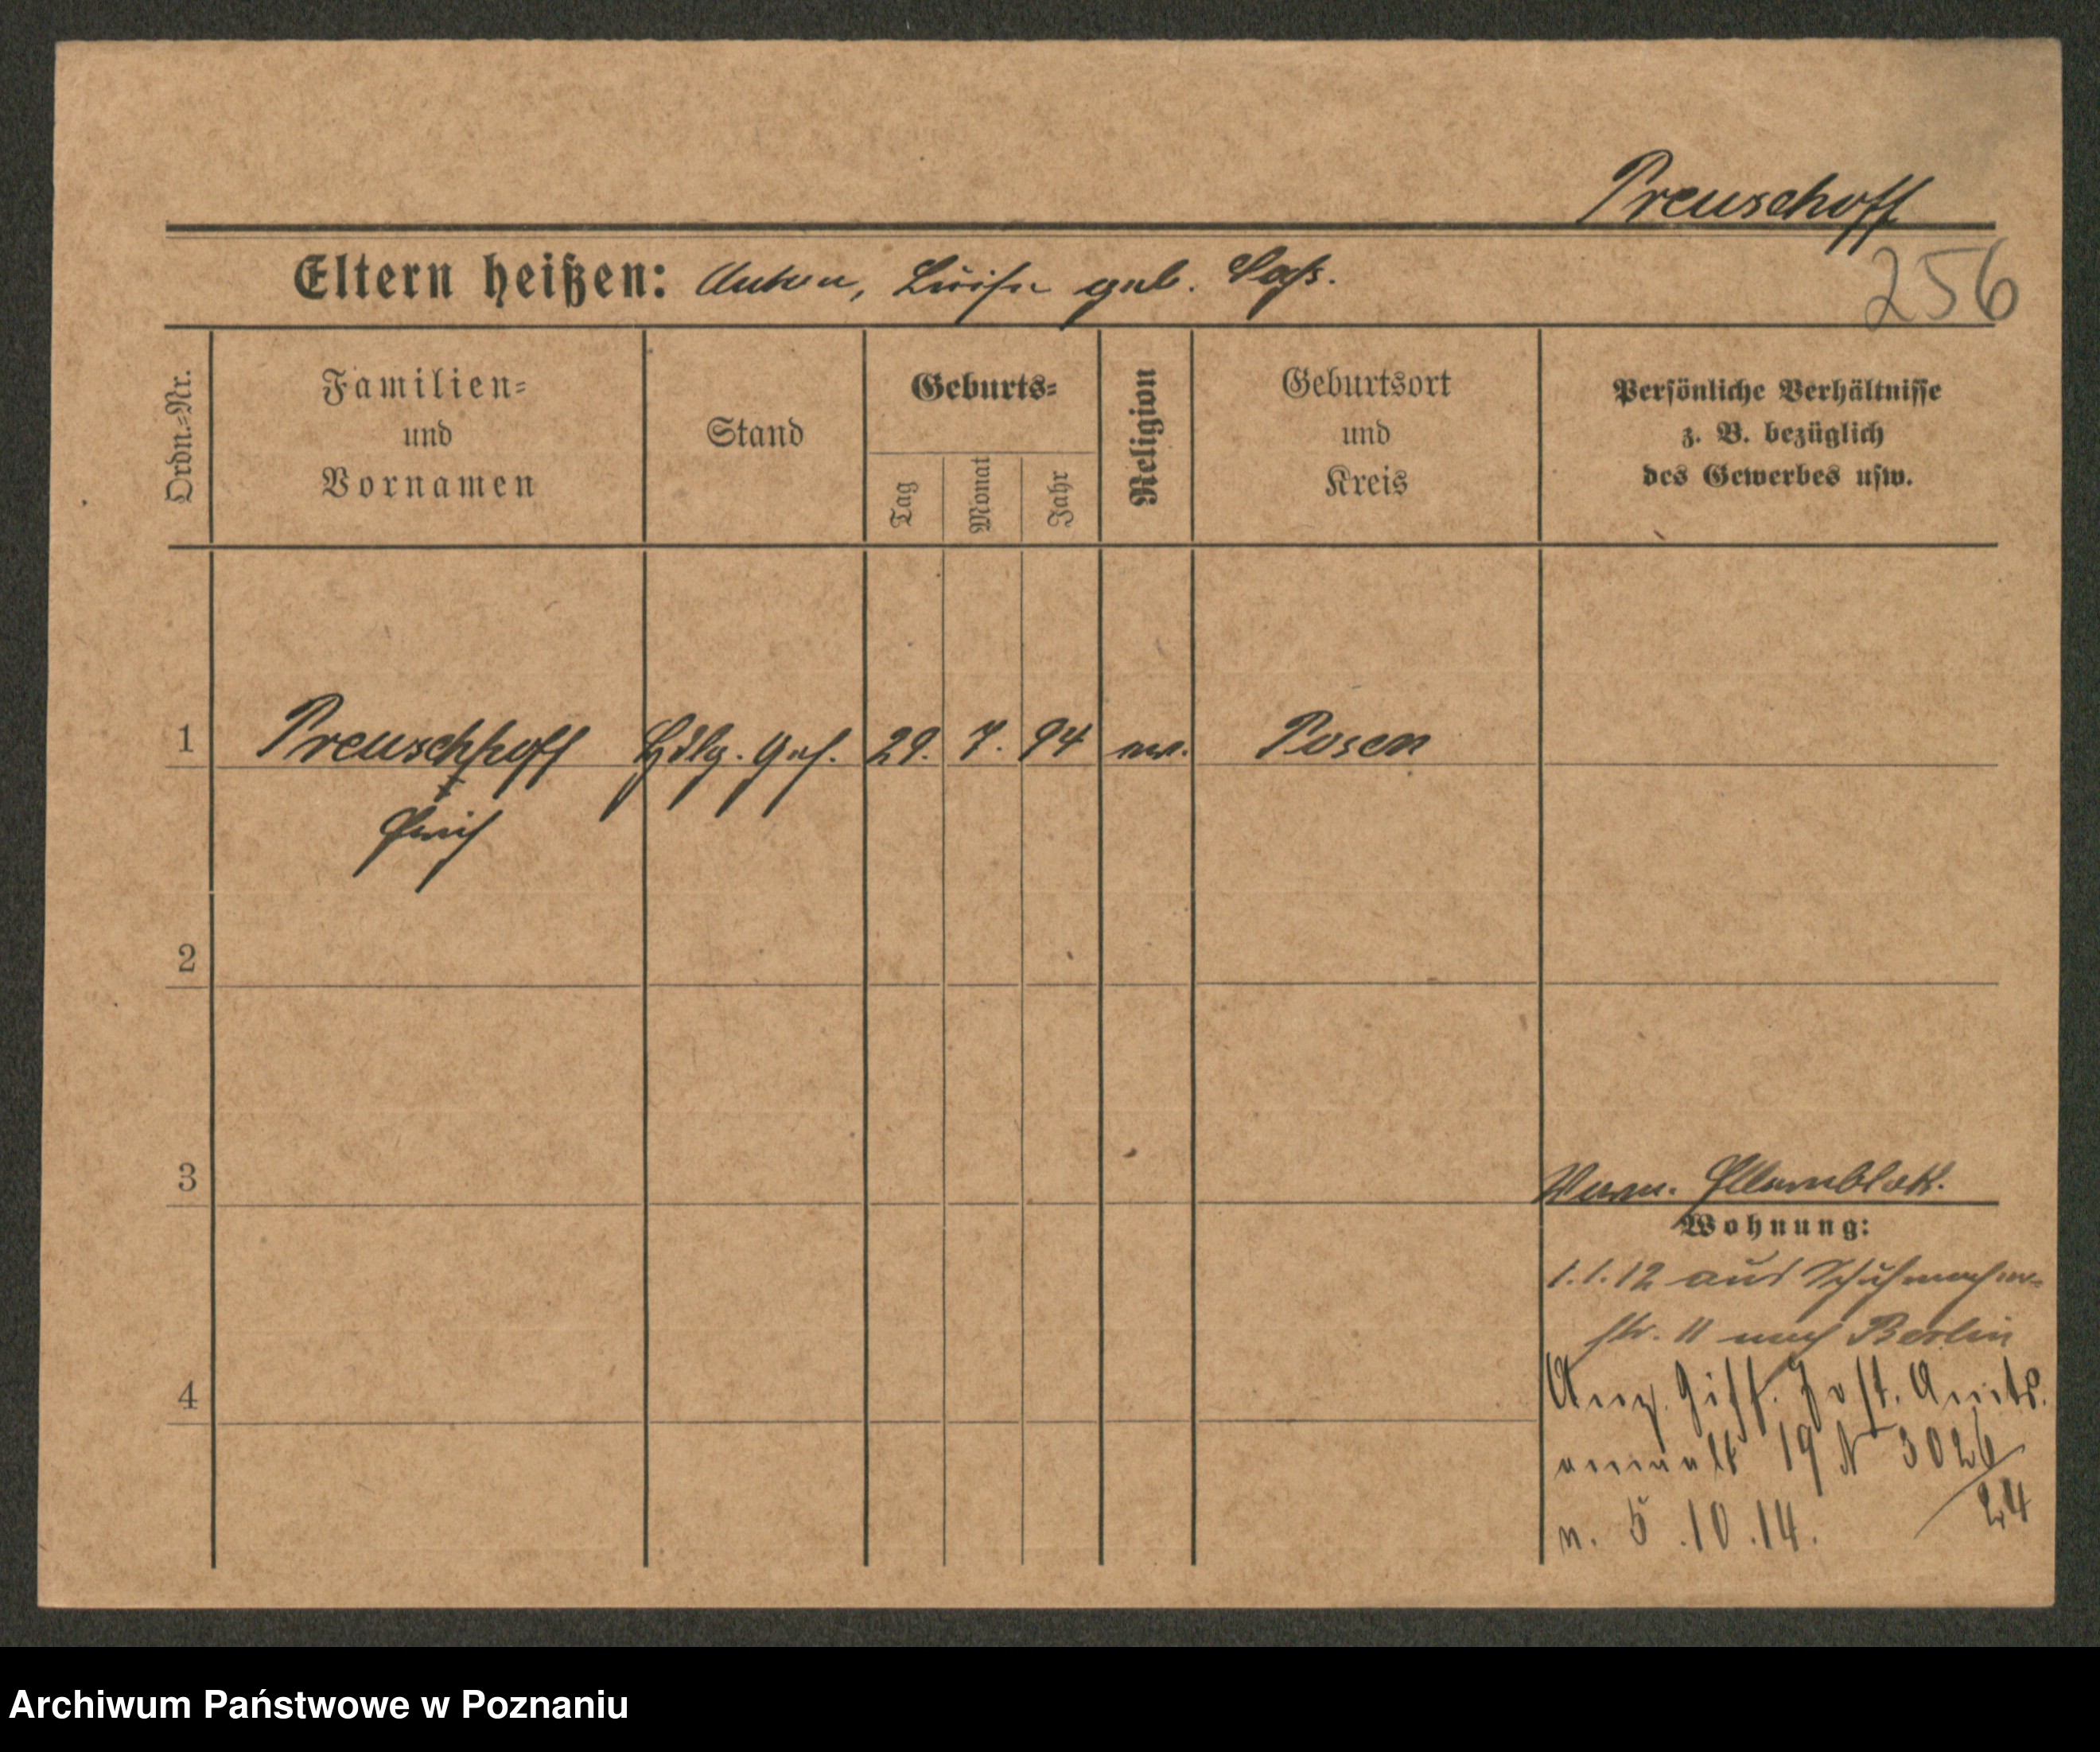 Preuschoff
256
Eltern heißen: Anton, Luise geb. Sachs.
Ordn.=Nr.
Familien=
und
Vornamen
Stand
Geburts=
Tag
Monat
Jahr
Religion
Geburtsort
und
Kreis
Persönliche Verhältnisse
z. B. bezüglich
des Gewerbes usw.
1 Preuschhoff Hdlg. Geh. 29. 7. 94 ev. Posen
2
3
Wohnung:
1.1.12 aus Schuhmacher-
str. 11 nach Berlin
4
Anz. Amts.
anwalt 19 N 3026/24
v. 5.10.14.
Archiwum Państwowe w Poznaniu